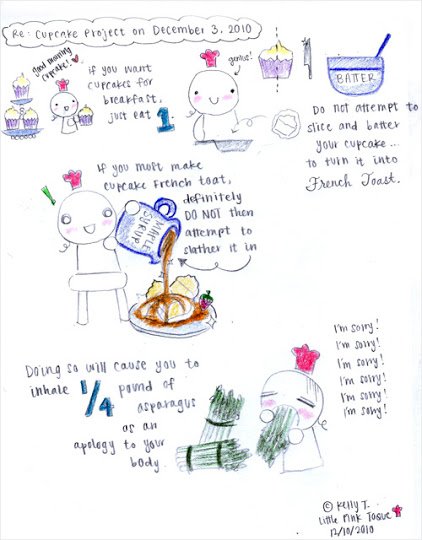 Re: Cupcake Project on December 3, 2010
Good morning
cupcake! ♥
if you want
cupcakes for
breakfast,
just eat 1.
genius!
BATTER
Do not attempt to
slice and batter
your cupcake...
to turn it into
French Toast.
If you most make
cupcake French toat,
definitely
DO NOT then
attempt to
slather it in
MAPLE
SYRUP
Doing so will cause you to
inhale 1/4 pound of
asparagus
as an
apology to your
body.
I'm sorry!
I'm sorry!
I'm sorry!
I'm sorry!
I'm sorry!
I'm sorry!
© Kelly T.
Little Pink Toque
12/10/2010